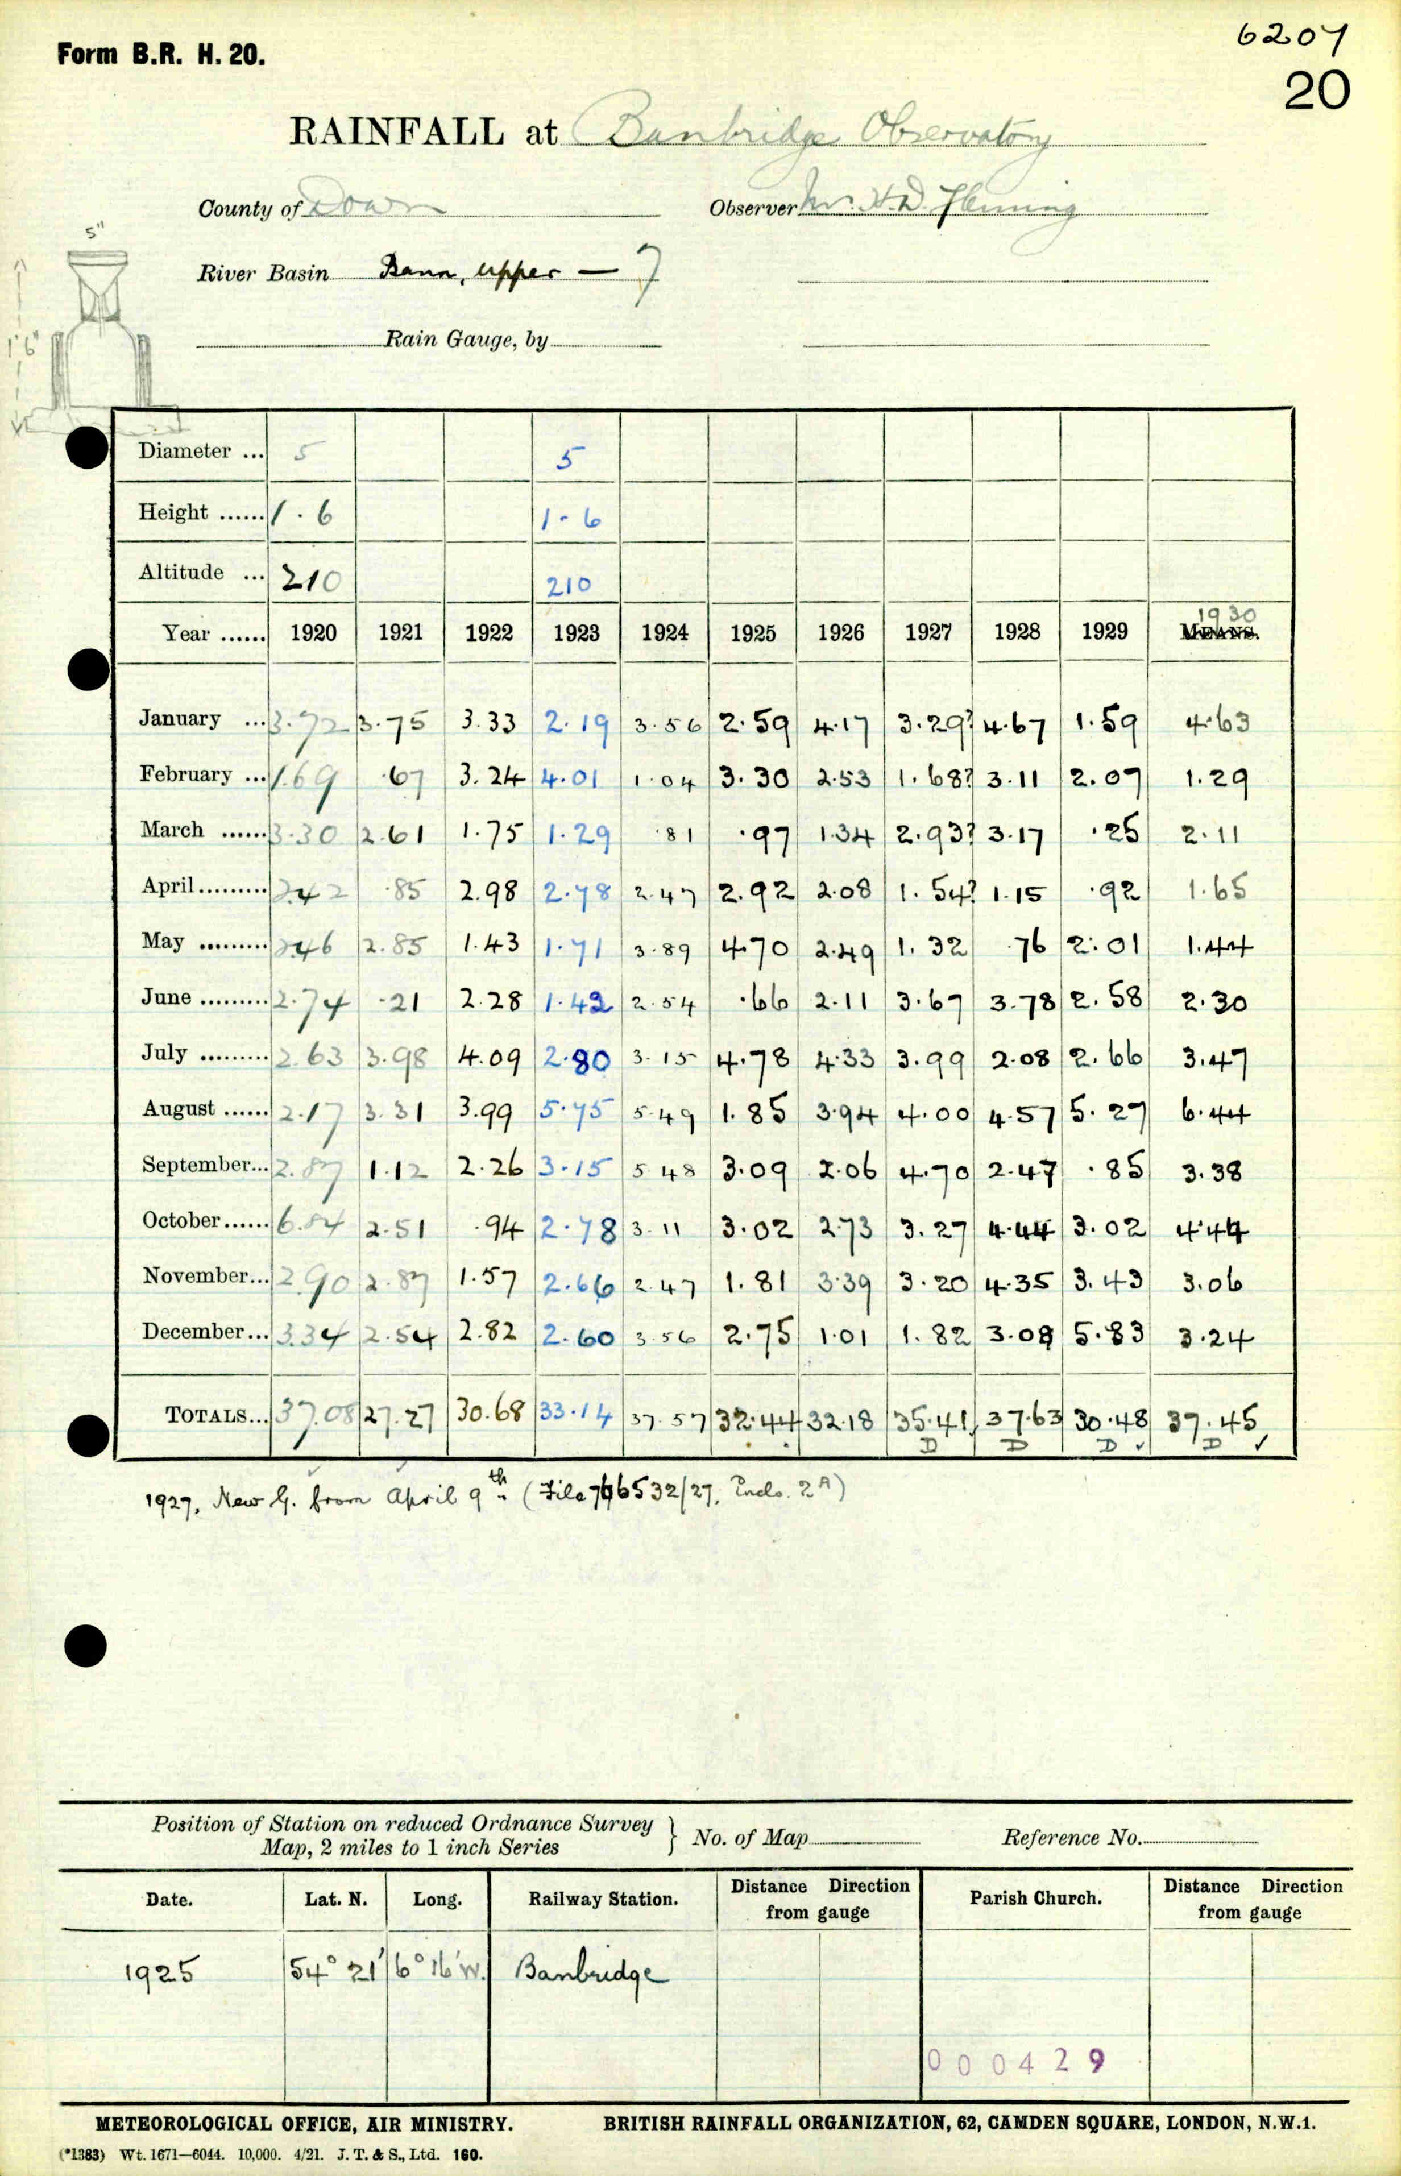 Form B.R. H. 20.
6207
20
RAINFALL at Banbridge Observatory
County of Down Observer Mr. H.D. Fleming
5"
River Basin Bann, upper — 7
1'6"
Rain Gauge, by
Diameter ... 5 5
Height ...... 1.6 1-6
Altitude ... 210 210
1930
Year ...... 1920 1921 1922 1923 1924 1925 1926 1927 1928 1929 MEANS.
January ... 3.72 3.75 3.33 2.19 3.56 2.59 4.17 3.29? 4.67 1.59 4.63
February ... 1.69 .67 3.24 4.01 1.04 3.30 2.53 1.68? 3.11 2.07 1.29
March ...... 3.30 2.61 1.75 1.29 .81 .97 1.34 2.93? 3.17 .25 2.11
April ......... 2.42 .85 2.98 2.78 2.47 2.92 2.08 1.54? 1.15 .92 1.65
May ......... 2.46 2.85 1.43 1.71 3.89 4.70 2.49 1.32 .76 2.01 1.44
June ......... 2.74 .21 2.28 1.42 2.54 .66 2.11 3.67 3.78 2.58 2.30
July ......... 2.63 3.98 4.09 2.80 3.15 4.78 4.33 3.99 2.08 2.66 3.47
August ...... 2.17 3.31 3.99 5.75 5.49 1.85 3.94 4.00 4.57 5.27 6.44
September... 2.87 1.12 2.26 3.15 5.48 3.09 2.06 4.70 2.47 .85 3.38
October...... 6.84 2.51 .94 2.78 3.11 3.02 2.73 3.27 4.44 3.02 4.44
November... 2.90 2.87 1.57 2.66 2.47 1.81 3.39 3.20 4.35 3.43 3.06
December... 3.34 2.54 2.82 2.60 3.56 2.75 1.01 1.82 3.08 5.83 3.24
TOTALS... 37.08 27.27 30.68 33.14 37.57 32.44 32.18 35.41 37.63 30.48 37.45
D D D ✓ D ✓
1927, New G. from April 9th (File 746532/27, Encls. 2A)
Position of Station on reduced Ordnance Survey
Map, 2 miles to 1 inch Series } No. of Map Reference No.
Date. Lat. N. Long. Railway Station. Distance Direction from gauge Parish Church. Distance Direction from gauge
1925 54° 21' 6° 16' W. Banbridge
000429
METEOROLOGICAL OFFICE, AIR MINISTRY. BRITISH RAINFALL ORGANIZATION, 62, CAMDEN SQUARE, LONDON, N.W.1.
(*1383) Wt. 1671—6044. 10,000. 4/21. J. T. & S., Ltd. 160.